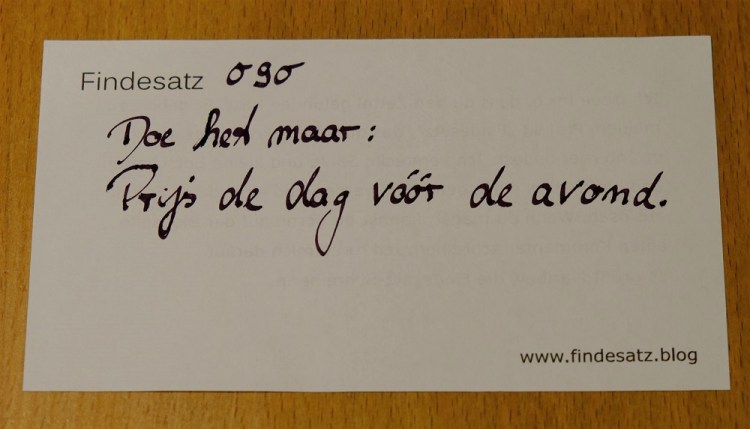 Findesatz 090
Doe het maar:
Prijs de dag vóór de avond.
www.findesatz.blog